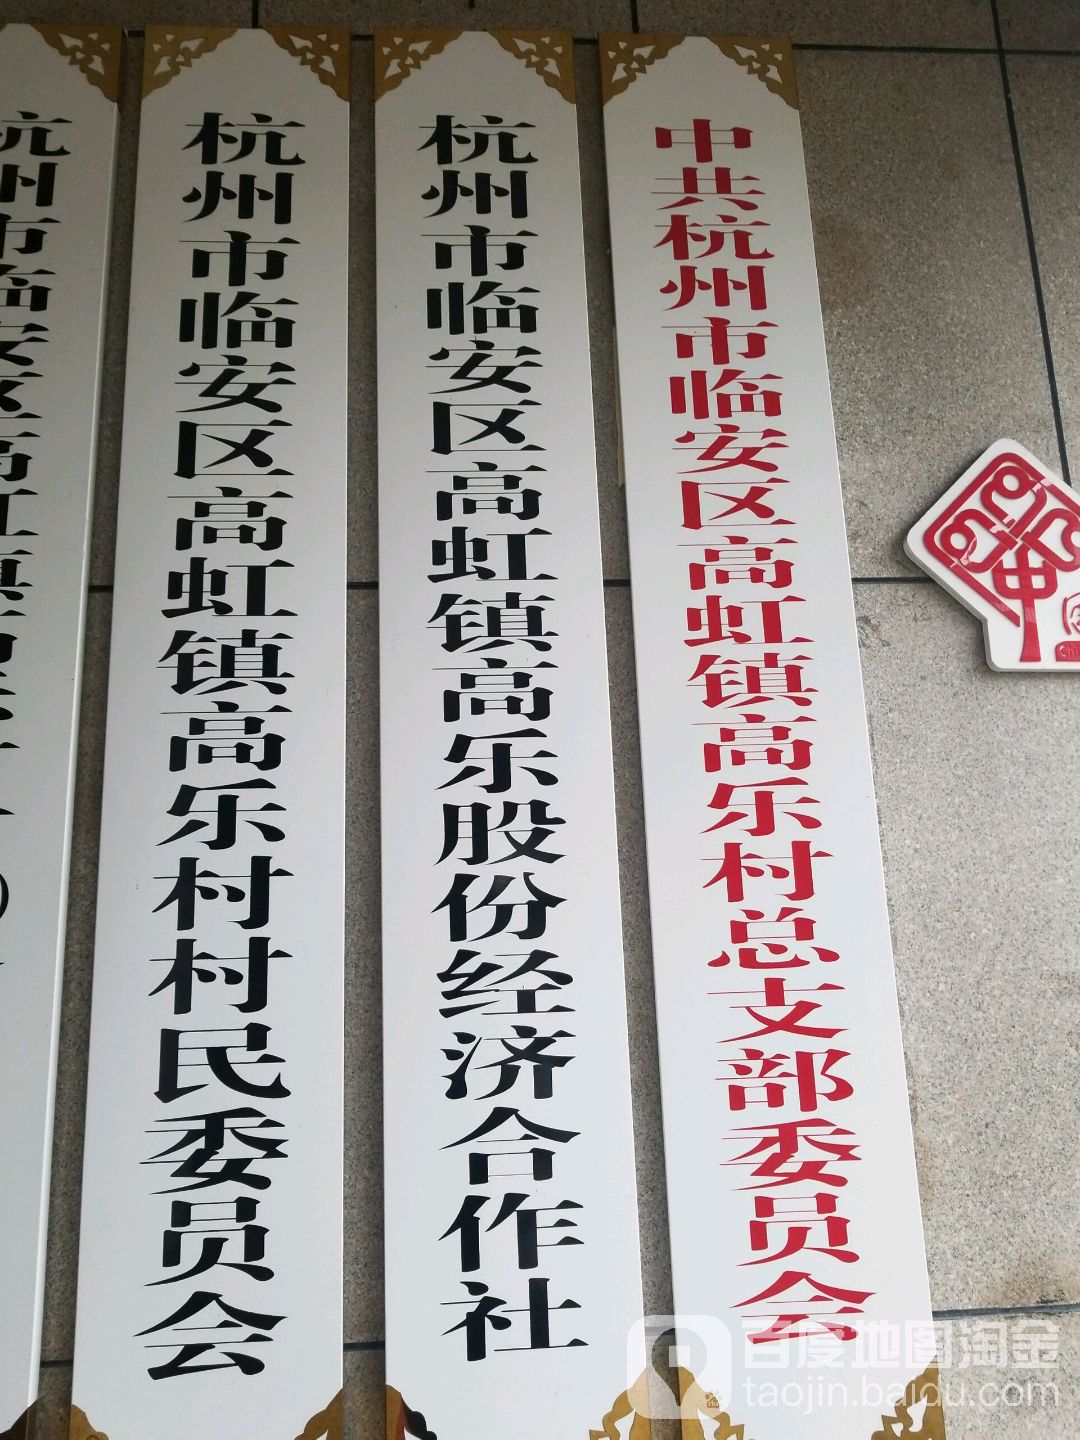 中共杭州市临安区高虹镇高乐村总支部委员会
杭州市临安区高虹镇高乐股份经济合作社
杭州市临安区高虹镇高乐村村民委员会
杭州市临安区高虹镇
百度地图淘金
taojin.baidu.com